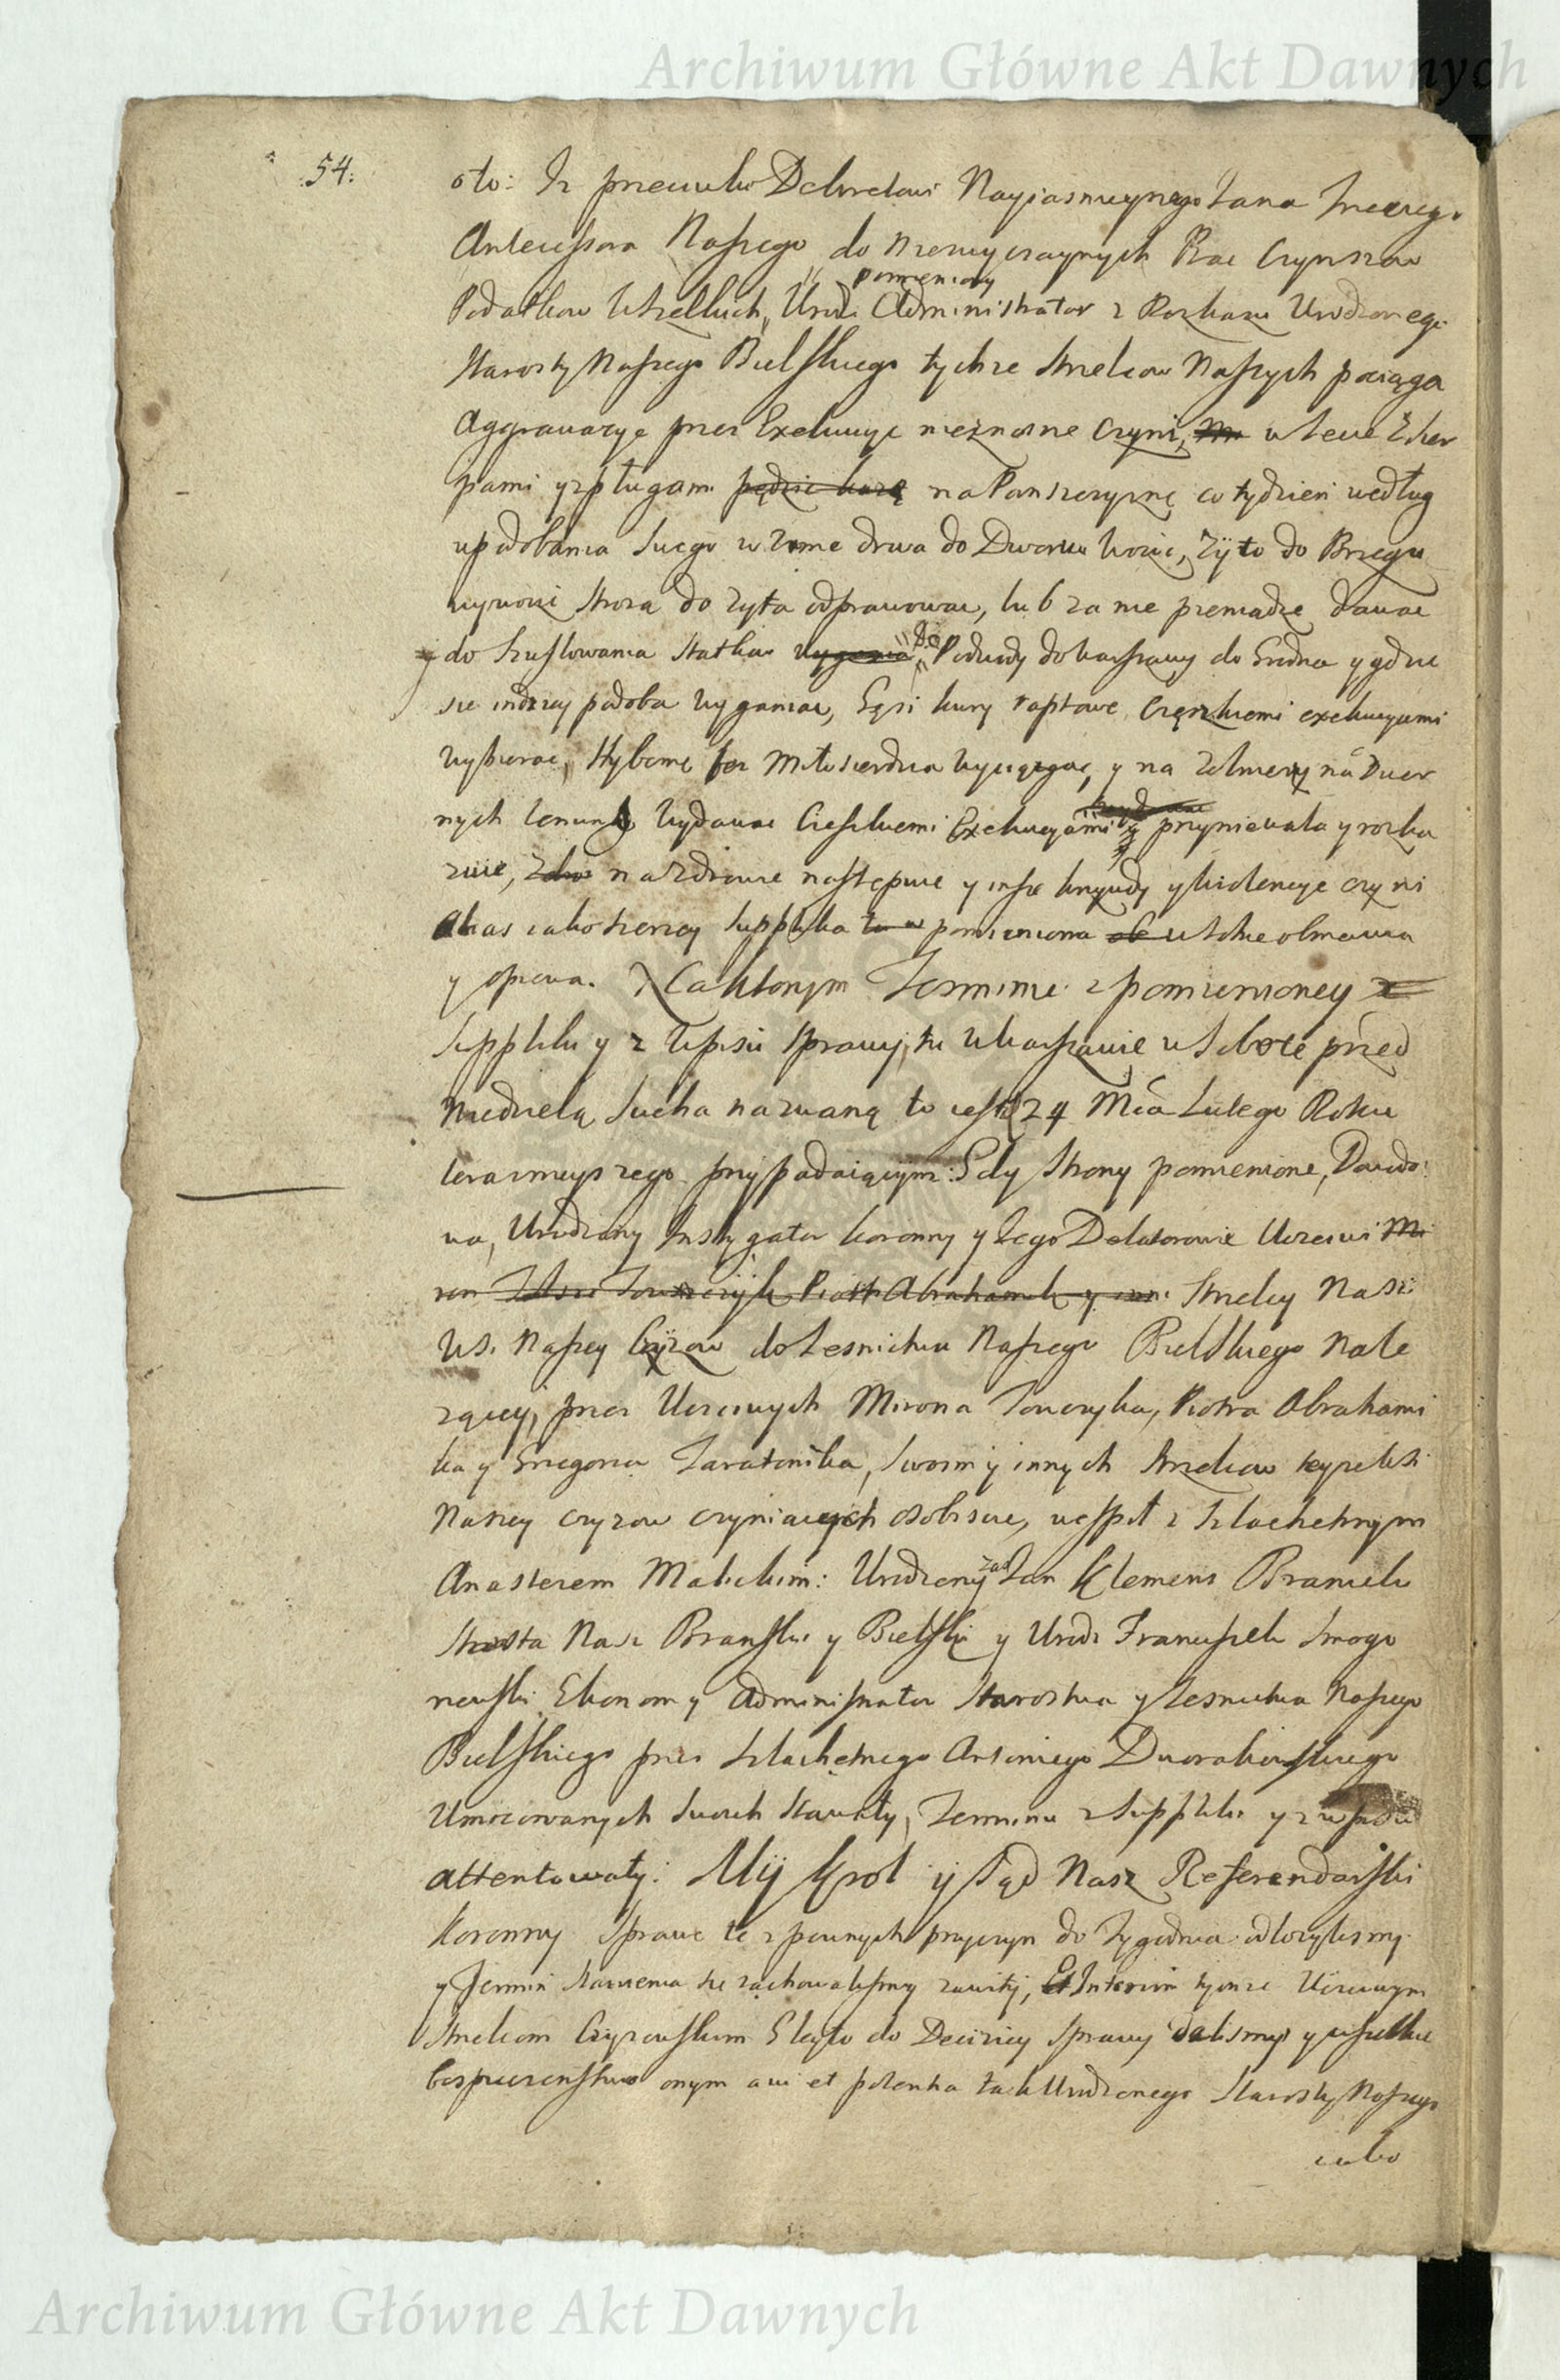 Archiwum Główne Akt Dawnych
54.
oto: Iz przeciwko Dekretowi Nayiasnieyszego Jana Trzeciego
Antecessora Naszego do niezwyczaynych Prac Czynszow
pomieniony
Podatkow Wszelkich, Urodz. Administrator z Rozkazu Urodzonego
Starosty Naszego Bielskiego tychze Strzelcow Naszych pociąga
Aggrawacye przez Exekucye nieznosne czyni, w Lecie z Sier
pami y z pługami pędzic każą na Panszczyznę co tydzień według
upodobania swego w zimie drwa do Dworu wozic, Zyto do Brzegu
wywozic stroza do zyta odprawowac, lub za nie pieniądze dawac
do
y do szuflowania statkow Podwody do Warszawy do Grodna y gdzie
sie indziey podoba wyganiac, Gęsi kury raptowe częzkiemi exekucyami
wybierac, Hybernę bez miłosierdzia wyciągac, y na Zolnierzy na
nych wydawac Cieszkiemi Exekucyami przyniewala y rozka
zuie, na zdrowie nastepuie y insze krzywdy y wiolencye czyni
iako szerzey Supplika pomieniona w sobie obmawia
y opiewa. Na ktorym Terminie z pomienioney
Suppliki y z Wpisu sprawy, tu w Warszawie w Sobotę przed
Niedzielą Sucha nazwaną to iest 24 Mca Lutego Roku
teraznieyszego przypadaiącym: Gdy Strony pomienione, Powodo
wa, Urodzony Instygator koronny y Jego Delatorowie Uczciwi Mi
ron Piotr Abrahamik y inni Strzelcy Nasi
Wsi Naszey Czyzow do Lesnictwa Naszego Bielskiego Nale
zący, przez Uczciwych Mirona Piotra Abrahami
ka y Grzegorza Swoim y innych Strzelcow teyze Wsi
Naszey Czyzow czyniących osobiscie, wespoł z Szlachetnym
zas
Malickim: Urodzony Jan Klemens Branicki
Starosta Nasz Branski y Bielski y Urodz. Franciszek Smogo
rzewski Ekonom y Administrator Starostwa y Lesnictwa Naszego
Bielskiego przez Szlachetnego Antoniego Dworakowskiego
Umocowanych swoich stawały, Terminu z Suppliki y z wpisu
attentowały: My Krol y Sąd Nasz Referendarski
Koronny sprawę tę z pewnych przyczyn do Tygodnia odłozylismy
y Termin stawienia się zachowalismy zawity, Et Interim tymze Uczciwym
Strzelcom Czyzewskim Gleyt do Decizyey sprawy dalismy y wszelkie
bespieczenstwo onym a vi et potentia tak Urodzonego Starosty Naszego
iako
Archiwum Główne Akt Dawnych